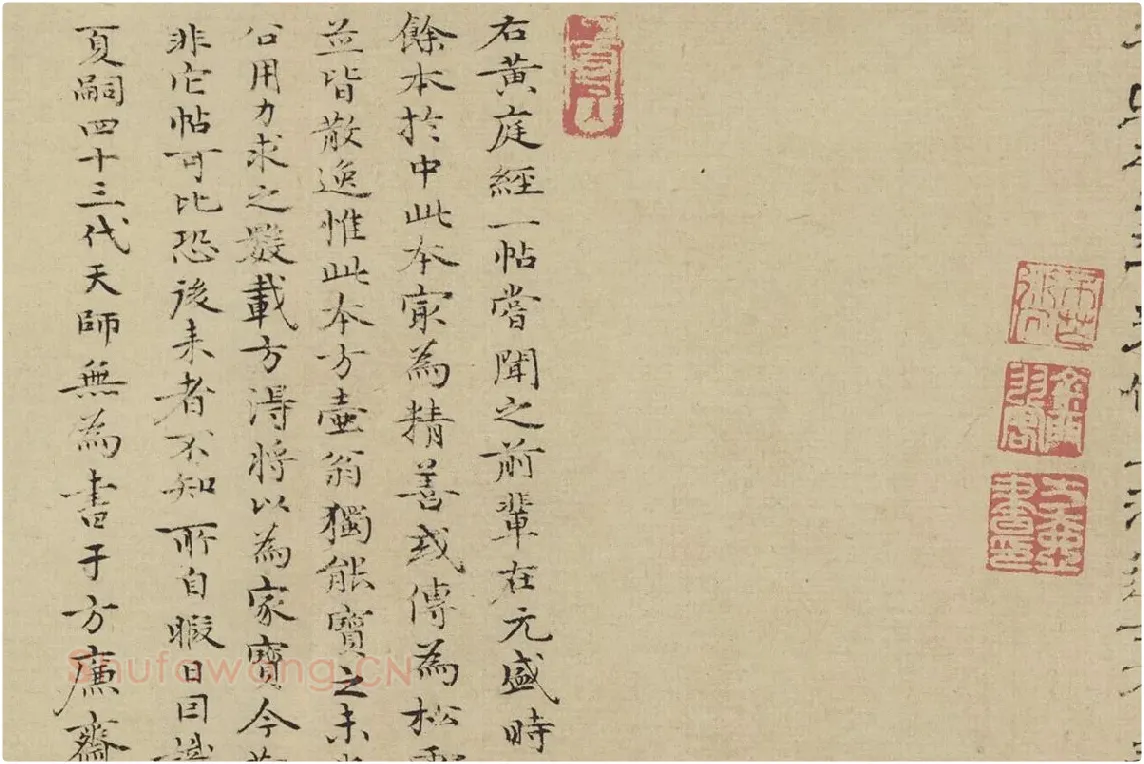 右黄庭經一帖嘗聞之前輩在元盛時
餘本於中此本㝡為精善或傳為松
並皆散逸惟此本方壺翁獨能寶之未
公用力求之數載方得將以為家寶今
非它帖可比恐後来者不知所自暇日因
頁嗣四十三代天師無為書于方廉齋
Shufawang.CN